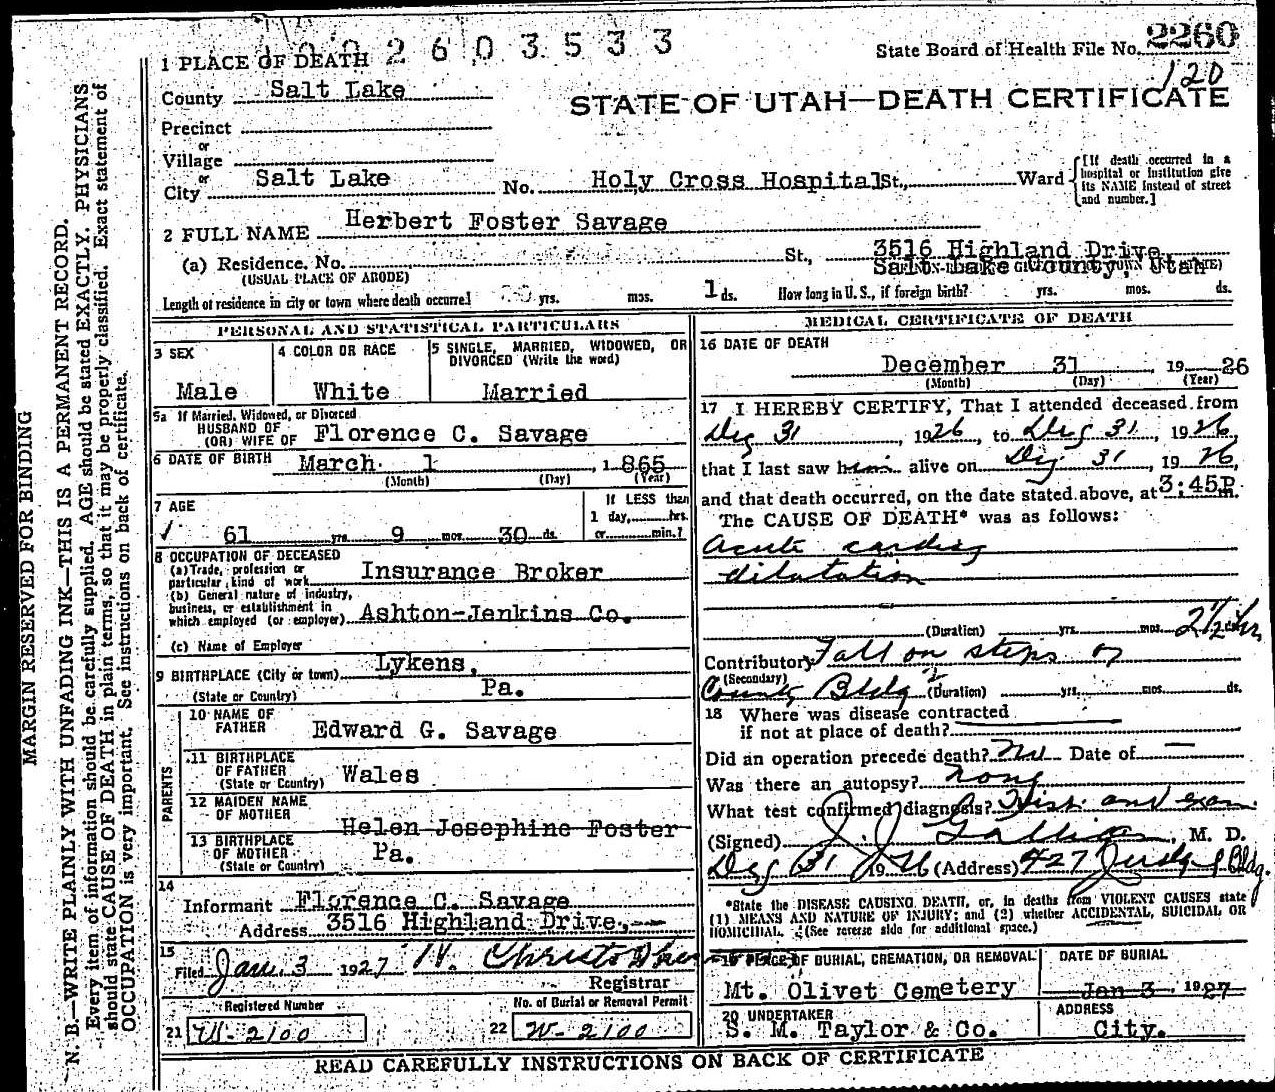 1002603533
State Board of Health File No. 2260
120
1 PLACE OF DEATH
County Salt Lake
STATE OF UTAH—DEATH CERTIFICATE
Precinct
or
Village
or
City Salt Lake No. Holy Cross Hospital St., Ward [If death occurred in a hospital or institution give its NAME instead of street and number.]
2 FULL NAME Herbert Foster Savage
(a) Residence. No. St., 3516 Highland Drive,
(USUAL PLACE OF ABODE) Salt Lake County, Utah
Length of residence in city or town where death occurred yrs. mos. 1 ds. How long in U. S., if foreign birth? yrs. mos. ds.
PERSONAL AND STATISTICAL PARTICULARS
3 SEX
Male
4 COLOR OR RACE
White
5 SINGLE, MARRIED, WIDOWED, OR
DIVORCED (Write the word)
Married
5a If Married, Widowed, or Divorced
HUSBAND OF
(OR) WIFE OF Florence C. Savage
6 DATE OF BIRTH March 1, 1865
(Month) (Day) (Year)
7 AGE
61 yrs. 9 mos. 30 ds.
If LESS than
1 day, hrs.
or min.?
8 OCCUPATION OF DECEASED
(a) Trade, profession or
particular kind of work Insurance Broker
(b) General nature of industry,
business, or establishment in
which employed (or employer) Ashton-Jenkins Co.
(c) Name of Employer
9 BIRTHPLACE (City or town) Lykens,
(State or Country) Pa.
PARENTS
10 NAME OF
FATHER Edward G. Savage
11 BIRTHPLACE
OF FATHER
(State or Country) Wales
12 MAIDEN NAME
OF MOTHER Helen Josephine Foster
13 BIRTHPLACE
OF MOTHER
(State or Country) Pa.
14
Informant Florence C. Savage
Address 3516 Highland Drive,
15
Filed Jan. 3 1927 Registrar
Registered Number
21 W-2100
No. of Burial or Removal Permit
22 W-2100
MEDICAL CERTIFICATE OF DEATH
16 DATE OF DEATH
December 31, 1926
(Month) (Day) (Year)
17 I HEREBY CERTIFY, That I attended deceased from
Dec 31, 1926, to Dec 31, 1926,
that I last saw him alive on Dec 31, 1926,
and that death occurred, on the date stated above, at 3:45P m.
The CAUSE OF DEATH* was as follows:
Acute cardiac
dilatation
(Duration) yrs. mos. 2½ hrs
Contributory Fall on steps of
(Secondary)
County Bldg (Duration) yrs. mos. ds.
18 Where was disease contracted
if not at place of death?
Did an operation precede death? No Date of —
Was there an autopsy? none
What test confirmed diagnosis? Hist. and exam
(Signed) J. J. Galligan, M. D.
Dec 31 1926 (Address) 427 Judge Bldg.
*State the DISEASE CAUSING DEATH, or, in deaths from VIOLENT CAUSES state
(1) MEANS AND NATURE OF INJURY; and (2) whether ACCIDENTAL, SUICIDAL OR
HOMICIDAL. (See reverse side for additional space.)
19 PLACE OF BURIAL, CREMATION, OR REMOVAL
Mt. Olivet Cemetery
DATE OF BURIAL
Jan 3, 1927
20 UNDERTAKER
S. M. Taylor & Co.
ADDRESS
City.
READ CAREFULLY INSTRUCTIONS ON BACK OF CERTIFICATE
MARGIN RESERVED FOR BINDING
N. B.—WRITE PLAINLY WITH UNFADING INK—THIS IS A PERMANENT RECORD.
Every item of information should be carefully supplied. AGE should be stated EXACTLY. PHYSICIANS
should state CAUSE OF DEATH in plain terms, so that it may be properly classified. Exact statement of
OCCUPATION is very important. See instructions on back of certificate.